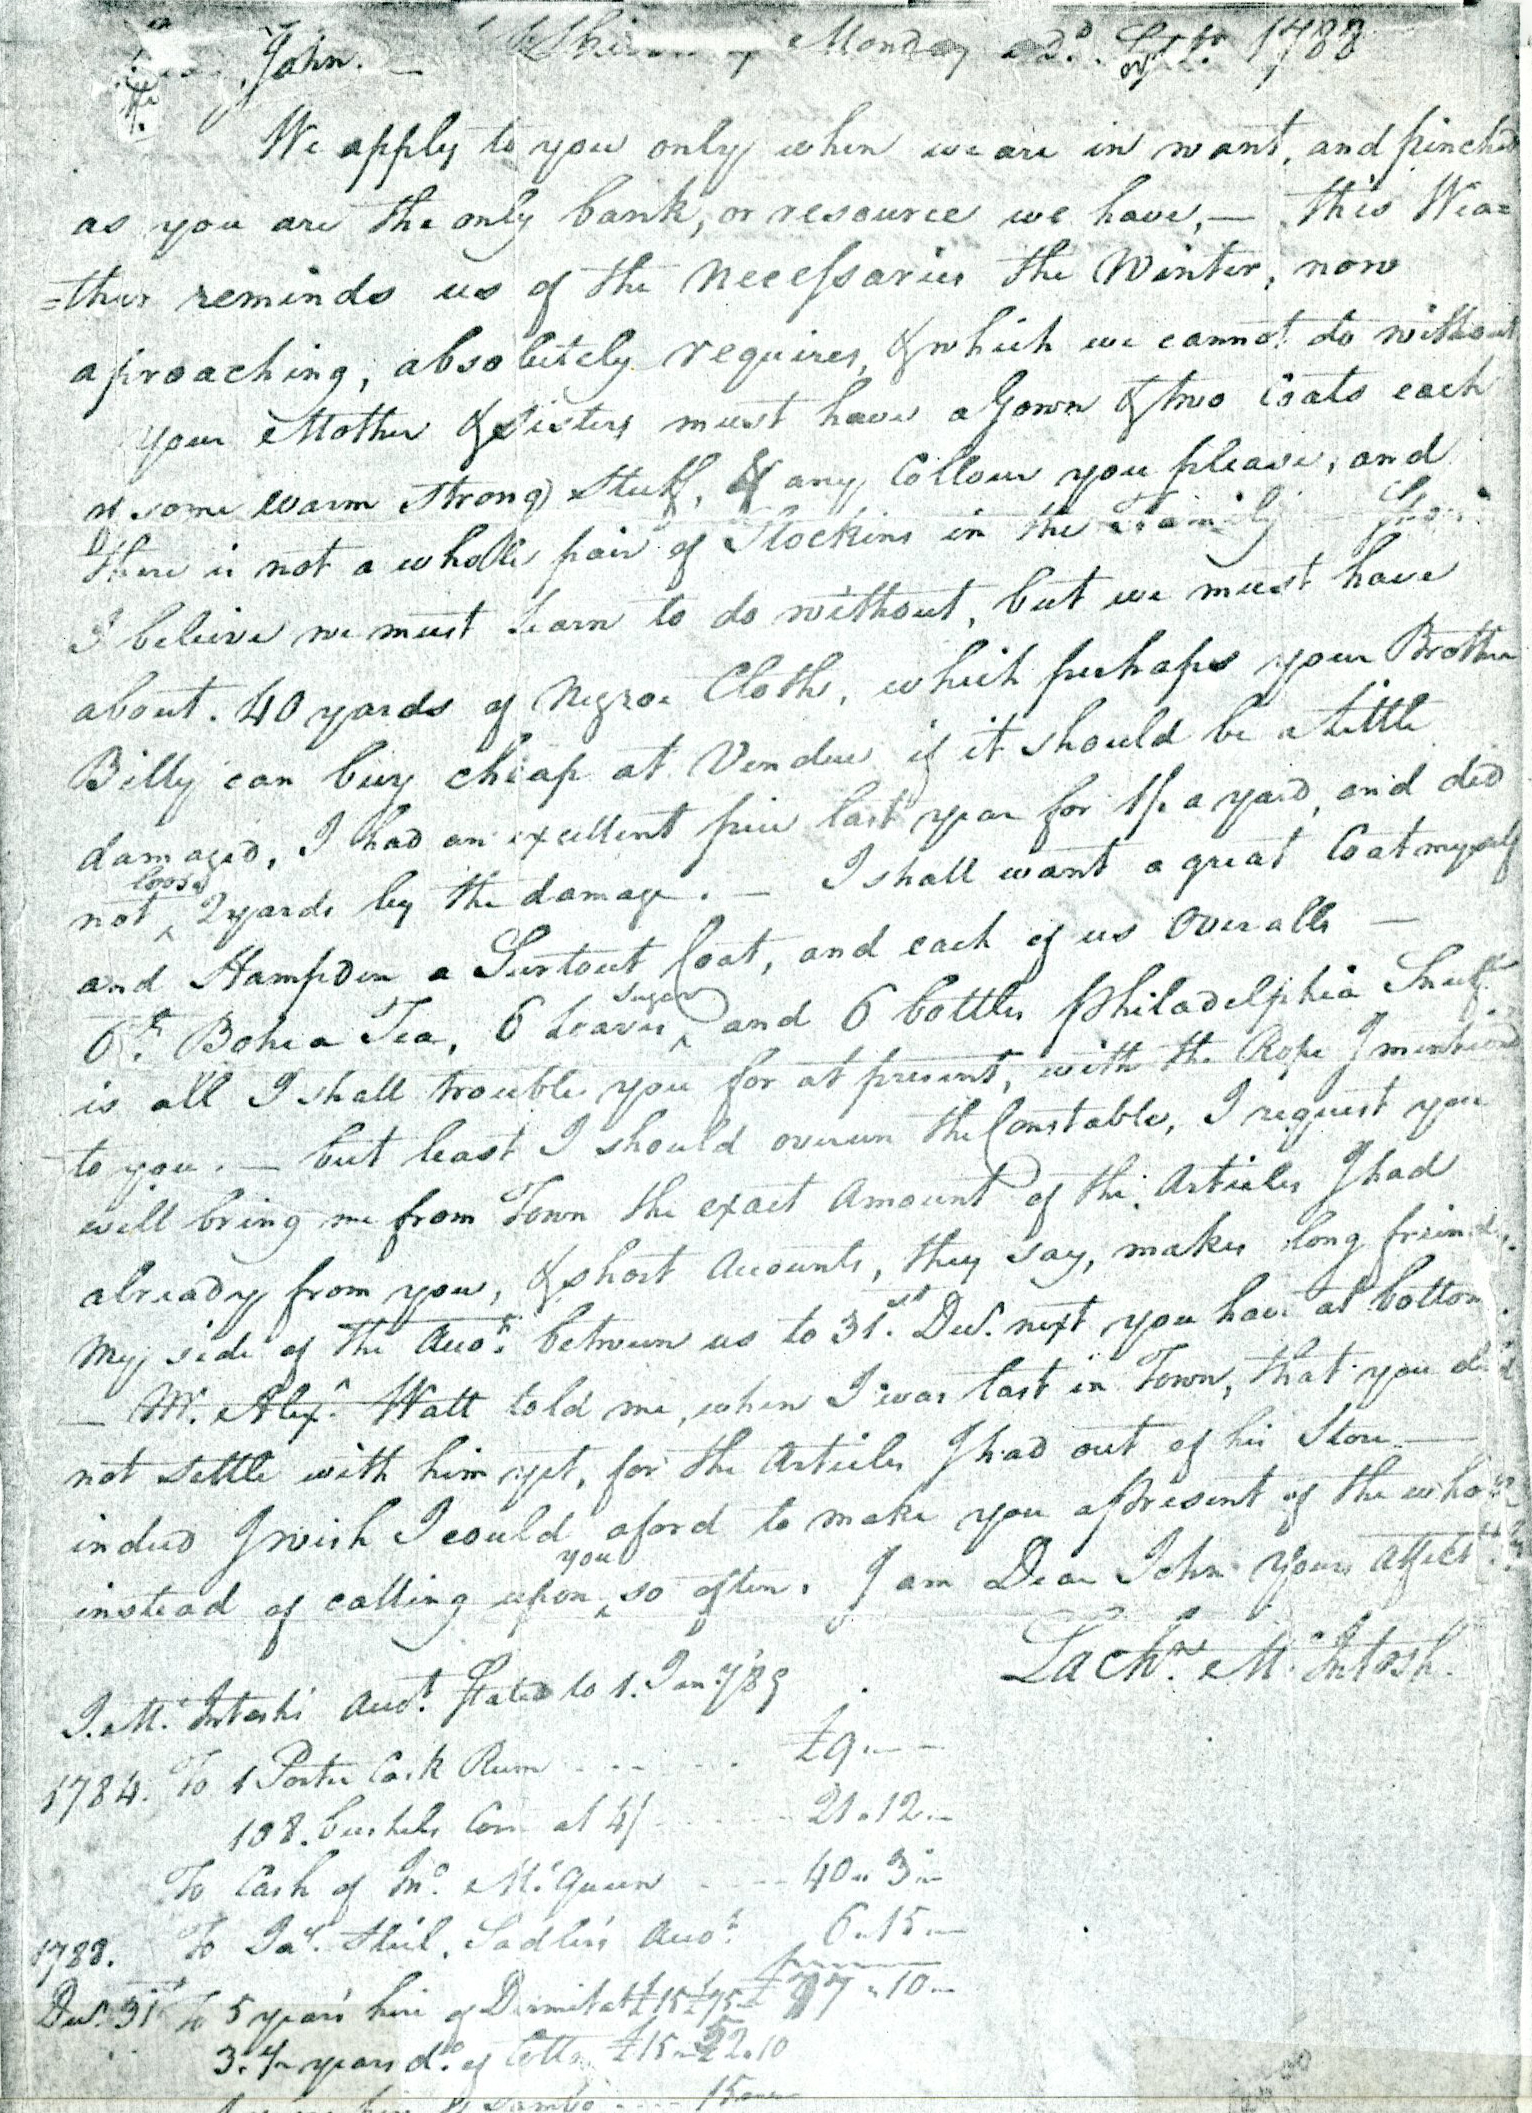 John. — Monday 22d. Septr. 1788
We apply to you only when we are in want, and pinched
as you are the only bank, or resource we have, — this Wea=
=ther reminds us of the Necessaries the Winter, now
aproaching, absolutely requires, & which we cannot do without
your Mother & Sisters must have a Gown & two Coats each
of some warm strong Stuff, any Collour you please, and
there is not a whole pair of Stockins in the Family
I beleive we must learn to do without, but we must have
about. 40 yards of Negroe Cloth, which perhaps your Brother
Billy can buy cheap at Vendue if it should be a little
damaged, I had an excellent piece last year for 1/. a yard, and did
not loose 2 yards by the damage. — I shall want a great Coat myself
and Hampden a Surtout Coat, and each of us Overalls —
6 lb. Bohea Tea, 6 Loaves Sugar, and 6 bottles Philadelphia Snuff
is all I shall trouble you for at present, with the Rope I mentiond
to you. — but least I should overun the Constable, I request you
will bring me from Town the exact Amount of the Articles I had
already from you, & short Accounts, they say, makes long freinds,
My side of the Accot. between us to 31st. Decr. next you have at bottom.
— Mr. Alexr. Watt told me, when I was last in Town, that you did
not settle with him yet, for the Articles I had out of his Store —
indeed I wish I could aford to make you a Present of the whole
instead of calling upon you so often. I am Dear John Yours Affectt.
Lachn. McIntosh.
J. McIntosh's Accot. Stated to 1. Jany. 89
1784. To 1 Porter Cask Rum - - - - £9.—
108. bushels Corn at 4/ - - - - 21.12.—
To Cash of Jno. McQueen - - - 40.3.—
1788. To Jas. Sadler's Accot. 6.15.—
£77.10.—
Decr. 31st To 5 years hire of at £15 £75
3. 1/2 years do. of £15 — 52.10
hire Sambo - - - - 15